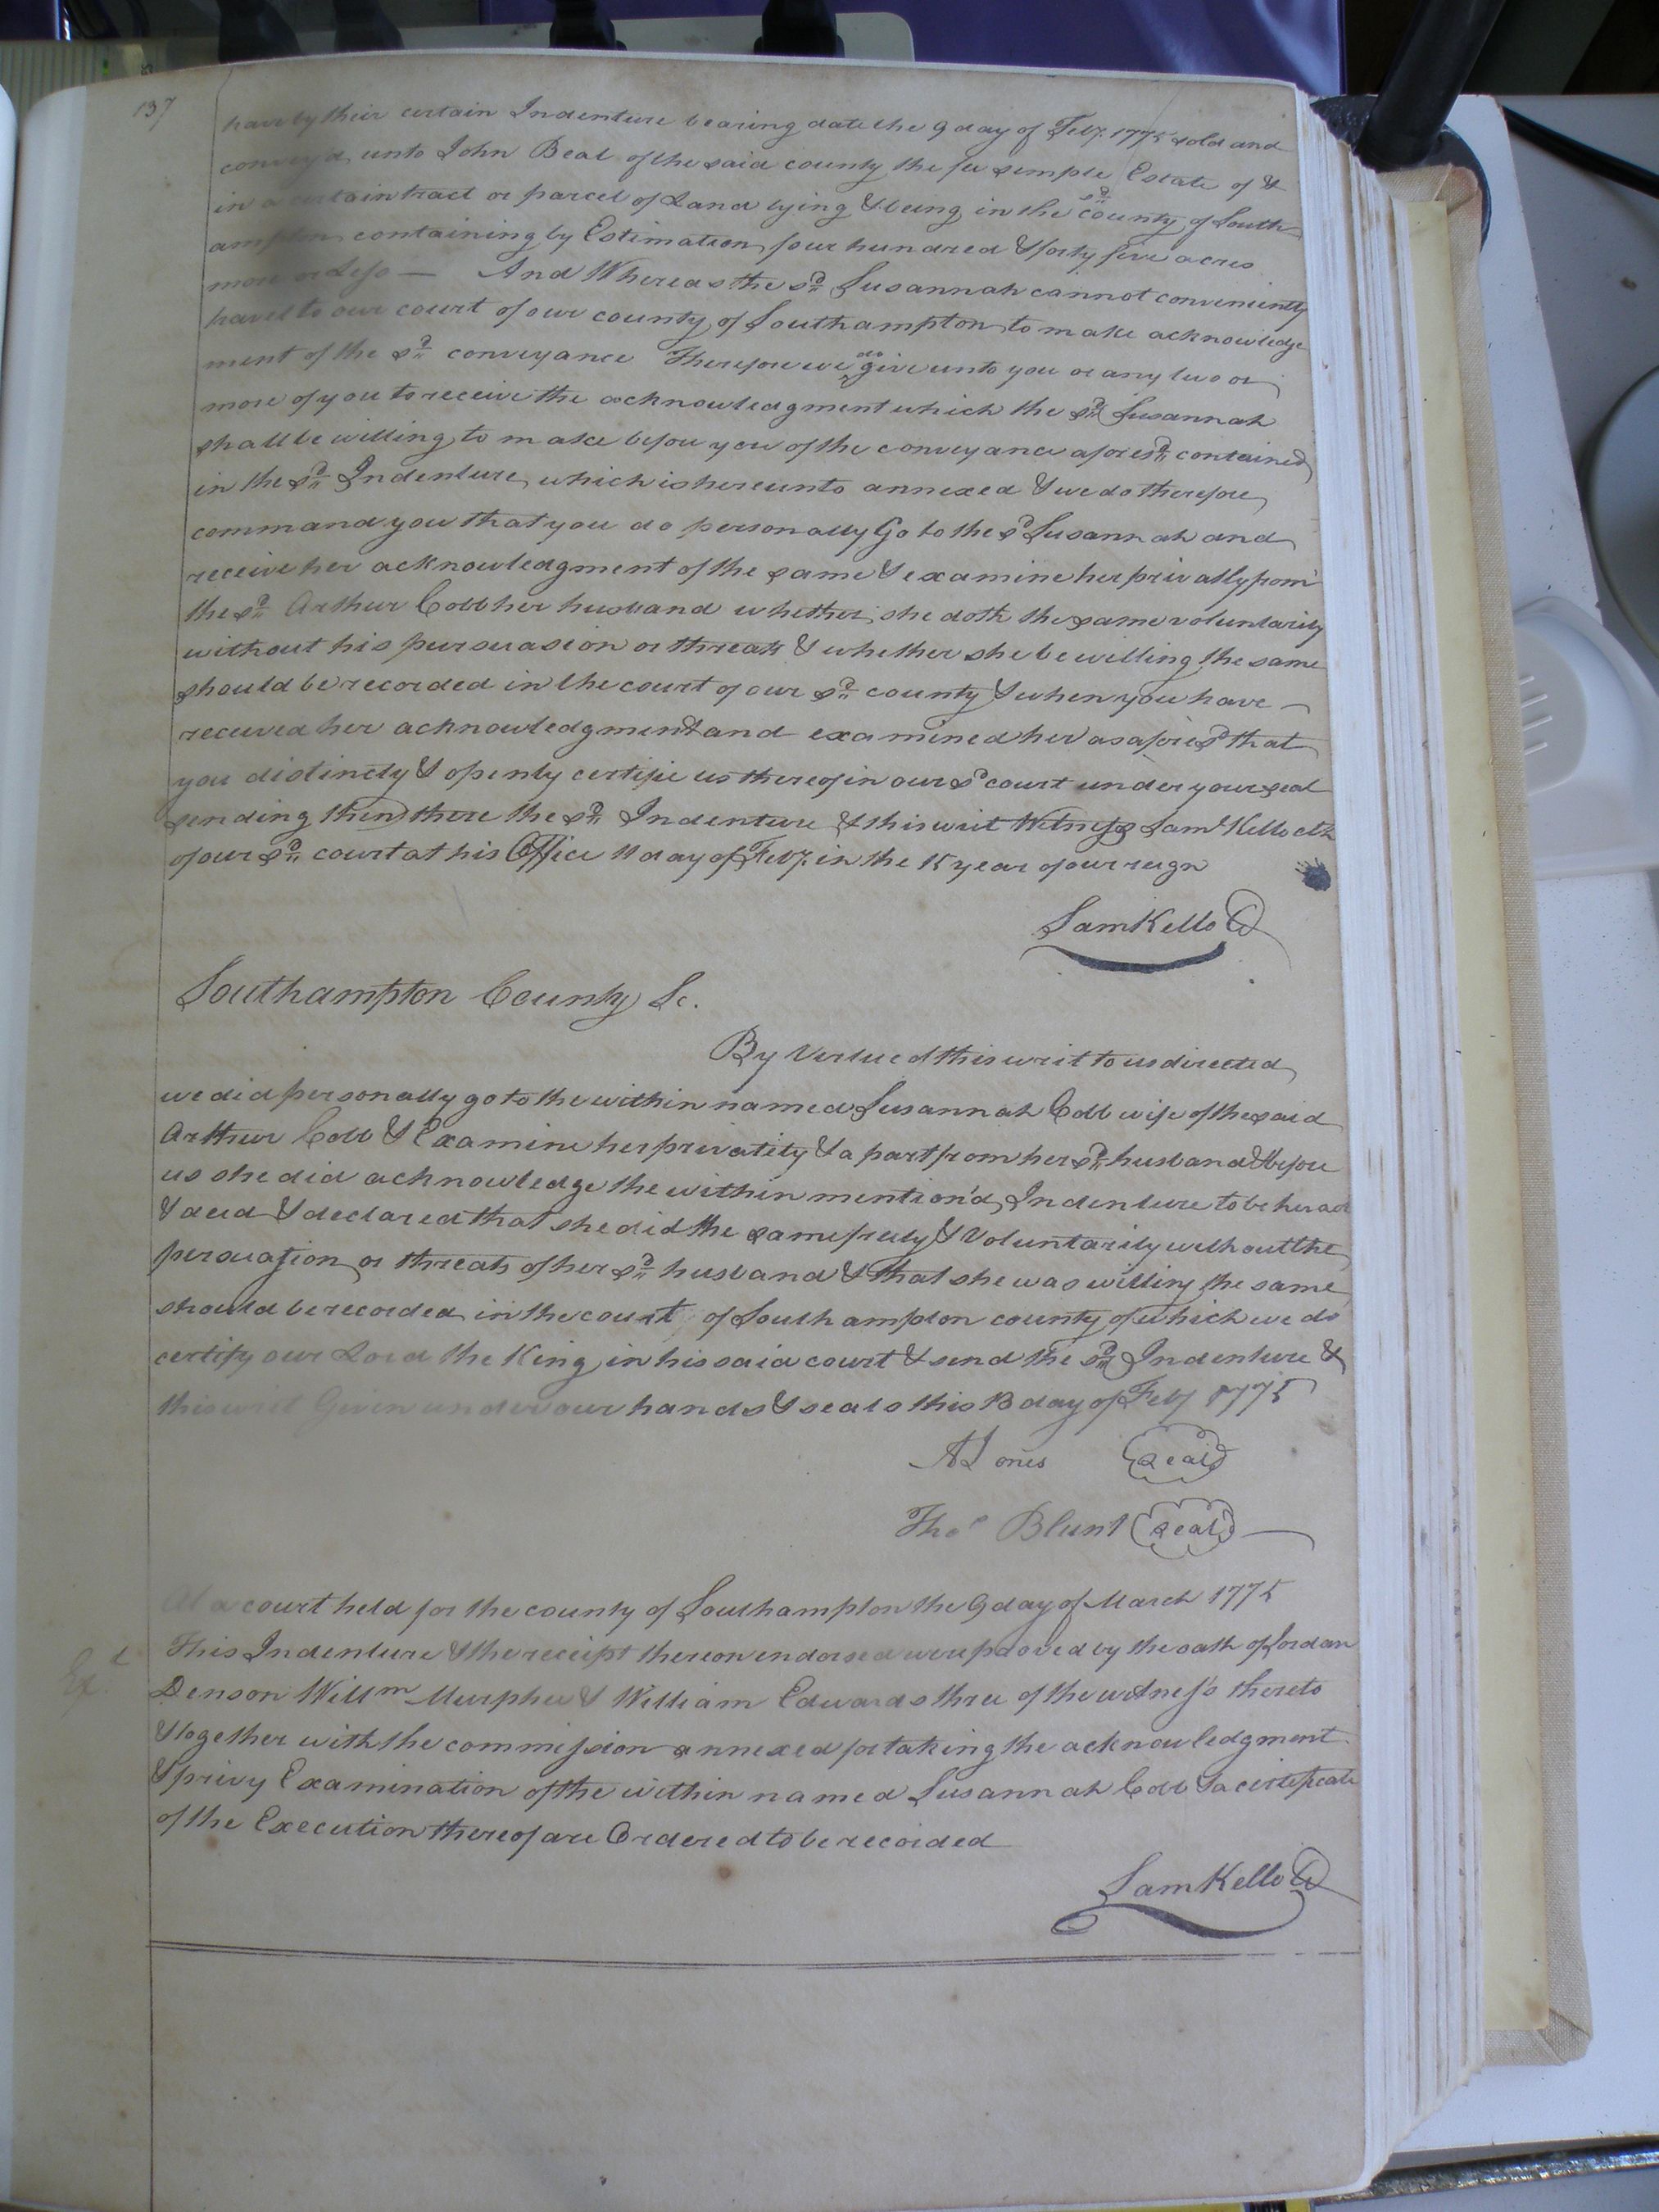 137
have by their certain Indenture bearing date the 9 day of Feby. 1775 sold and
convey'd unto John Beal of the said county the fee simple Estate of &
in a certain tract or parcel of Land lying & being in the sd county of South
ampton containing by Estimation four hundred & forty five acres
more or Less — And Whereas the sd Susannah cannot conveniently
travel to our court of our county of Southampton to make acknowledge
ment of the sd conveyance Therefore we do give unto you or any two or
more of you to receive the acknowledgment which the sd Susannah
shall be willing to make before you of the conveyance aforesd contained
in the sd Indenture which is hereunto annexed & we do therefore
command you that you do personally Go to the sd Susannah and
receive her acknowledgment of the same & examine her privatly from
the sd Arthur Cobb her husband whether she doth the same voluntarily
without his persuasion or threats & whether she be willing the same
should be recorded in the court of our sd county & when you have
received her acknowledgment and examined her as aforesd that
you distincty & openly certifie us thereof in our sd court under your seal
sending then there the sd Indenture & this writ Witness Saml Kello clk
of our sd court at his Office 11 day of Feby. in the 15 year of our reign
Sam Kello Cl
Southampton County Sc.
By Virtue of this writ to us directed
we did personally go to the within named Susannah Cobb wife of the said
Arthur Cobb & Examine her privatily & a part from her sd husband & before
us she did acknowledge the within mention'd Indenture to be her act
& deed & declared that she did the same freely & Voluntarily without the
persuasion or threats of her sd husband & that she was willing the same
should be recorded in the court of Southampton county of which we do
certify our Lord the King in his said court & send the sd Indenture &
this writ Given under our hands & seals this 13 day of Feby 1775
A Jones Seal
Thos Blunt Seal
At a court held for the county of Southampton the 9 day of March 1775
This Indenture & the receipt thereon endorsed were proved by the oath of Jordan
Exd.
Denson Willm Murphee & William Edwards three of the witness's thereto
& together with the commission annexed for taking the acknowledgment
& privy Examination of the within named Susannah Cobb & a certificate
of the Execution thereof are Ordered to be recorded
Sam Kello Cl